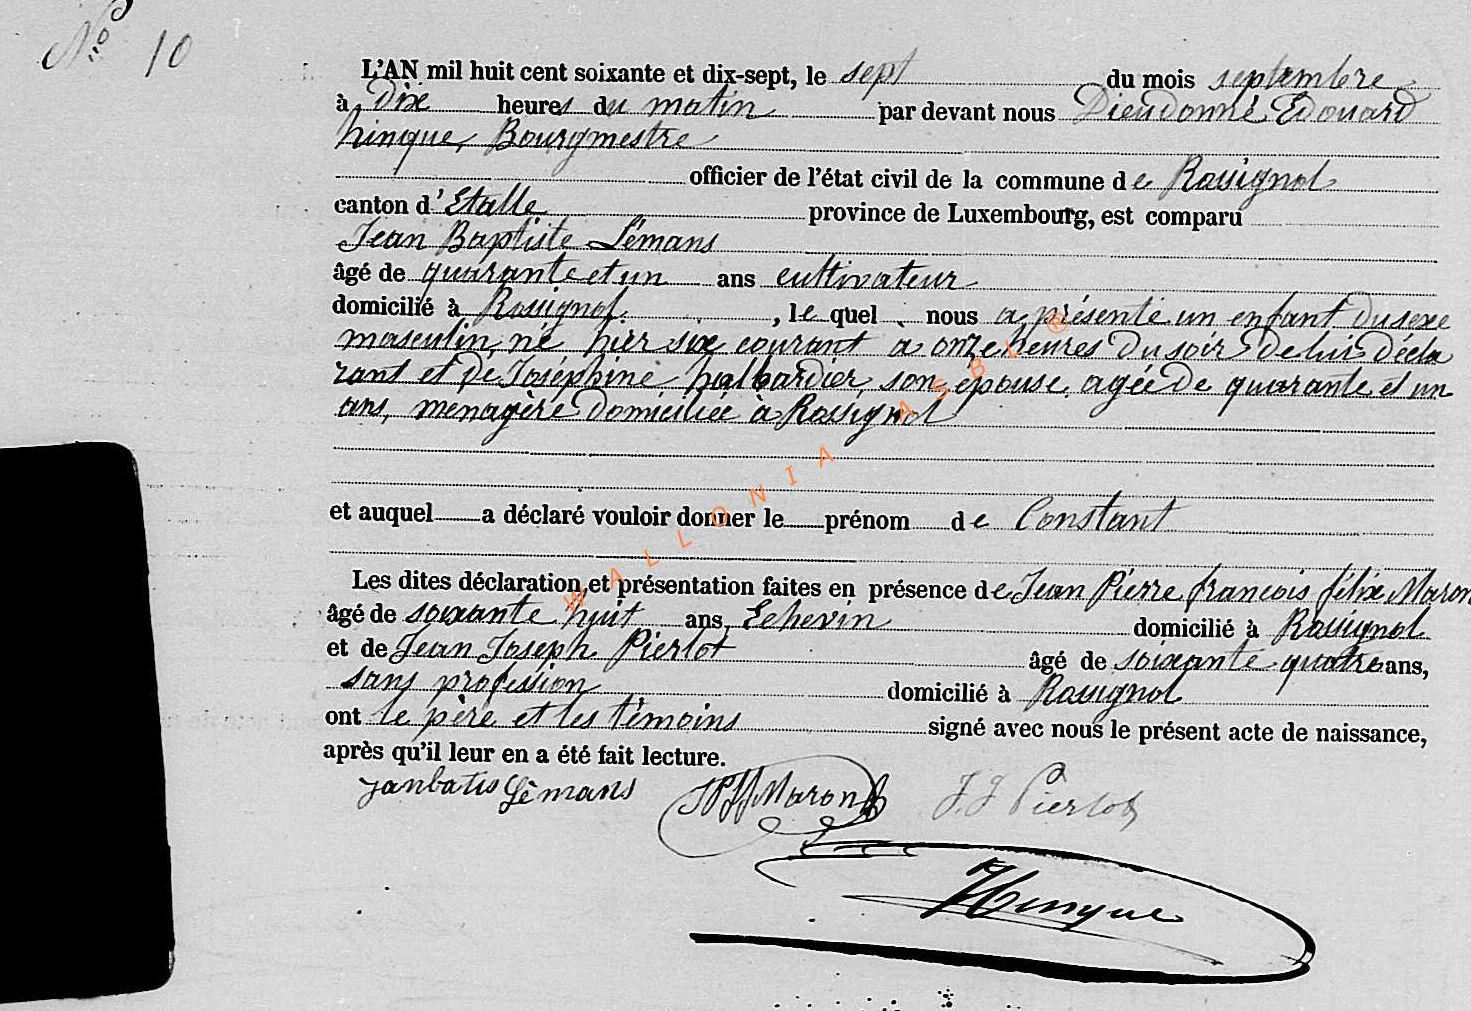 N° 10
L'AN mil huit cent soixante et dix-sept, le sept du mois septembre
à dix heures du matin par devant nous Dieudonné Edouard
hinque, Bourgmestre
officier de l'état civil de la commune de Rossignol
canton d'Etalle province de Luxembourg, est comparu
Jean Baptiste Lémans
âgé de quarante et un ans cultivateur
domicilié à Rossignol, le quel nous a présenté un enfant du sexe
masculin, né hier six courant à onze heures du soir de lui décla
rant et de Joséphine halbardier, son épouse, agée de quarante et un
ans, menagère domiciliée à Rossignol
et auquel a déclaré vouloir donner le prénom de Constant
Les dites déclaration et présentation faites en présence de Jean Pierre francois félix Maron
âgé de soixante huit ans, Echevin domicilié à Rossignol
et de Jean Joseph Pierlot âgé de soixante quatre ans,
sans profession domicilié à Rossignol
ont le père et les témoins signé avec nous le présent acte de naissance,
après qu'il leur en a été fait lecture.
Janbatis Lèmans JPff Maron J. J Pierlot
Hinque
WALLONIA ASBL ®